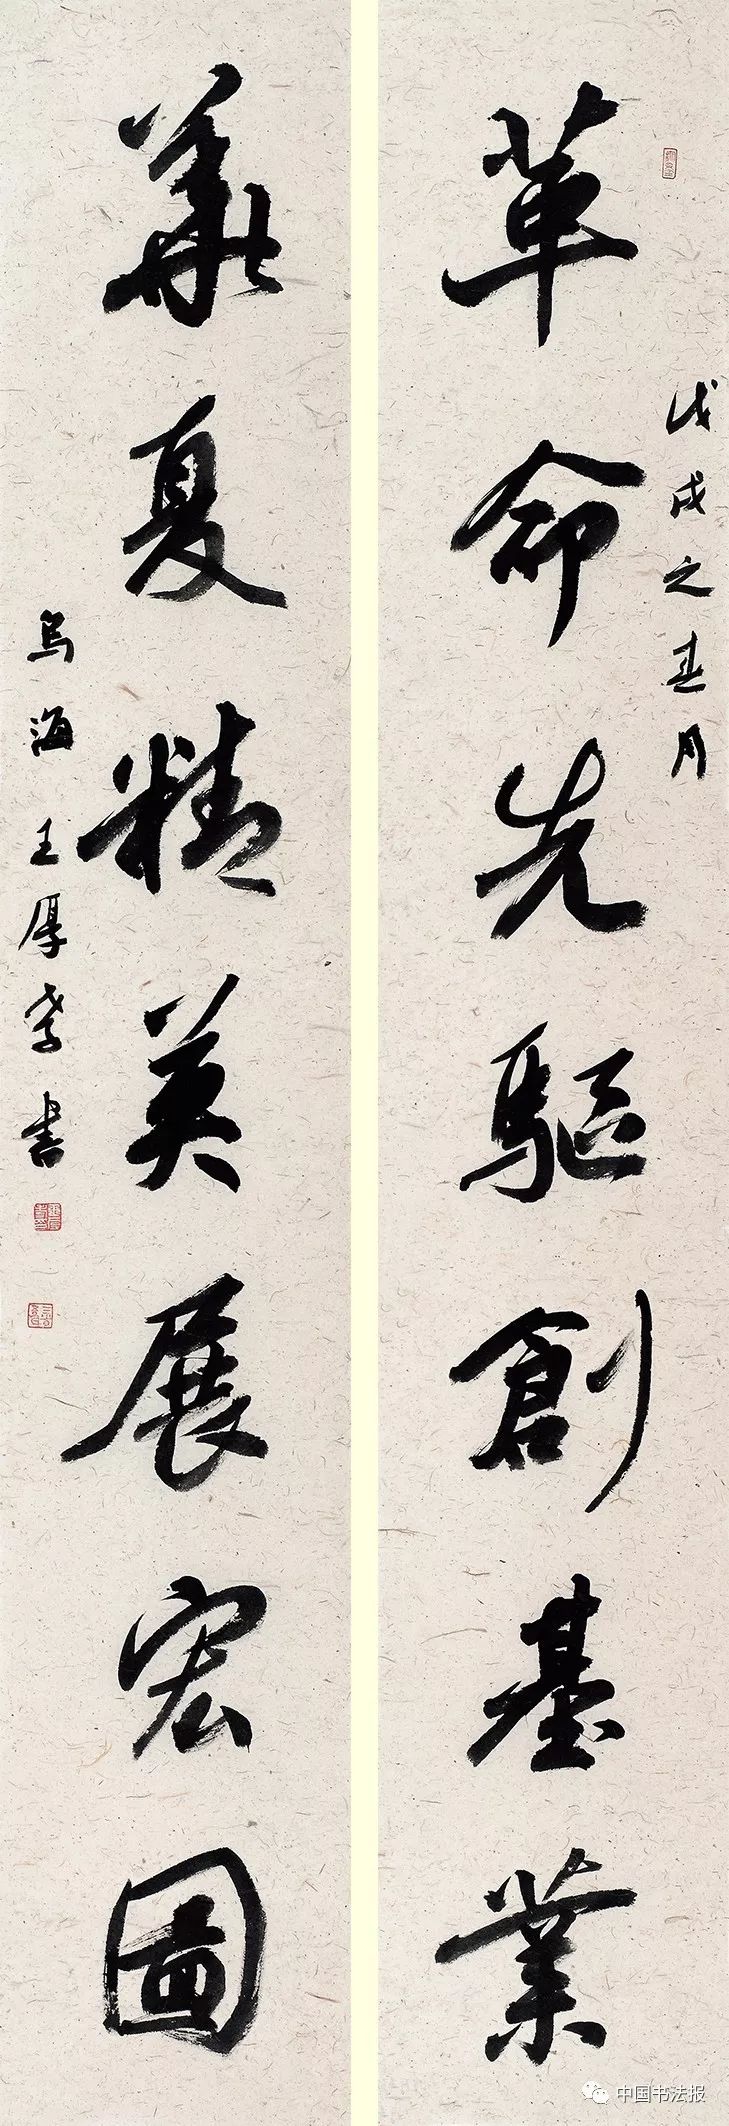 戊戌之春月
革命先驅創基業
華夏精英展宏圖
烏海王厚書
中国书法报